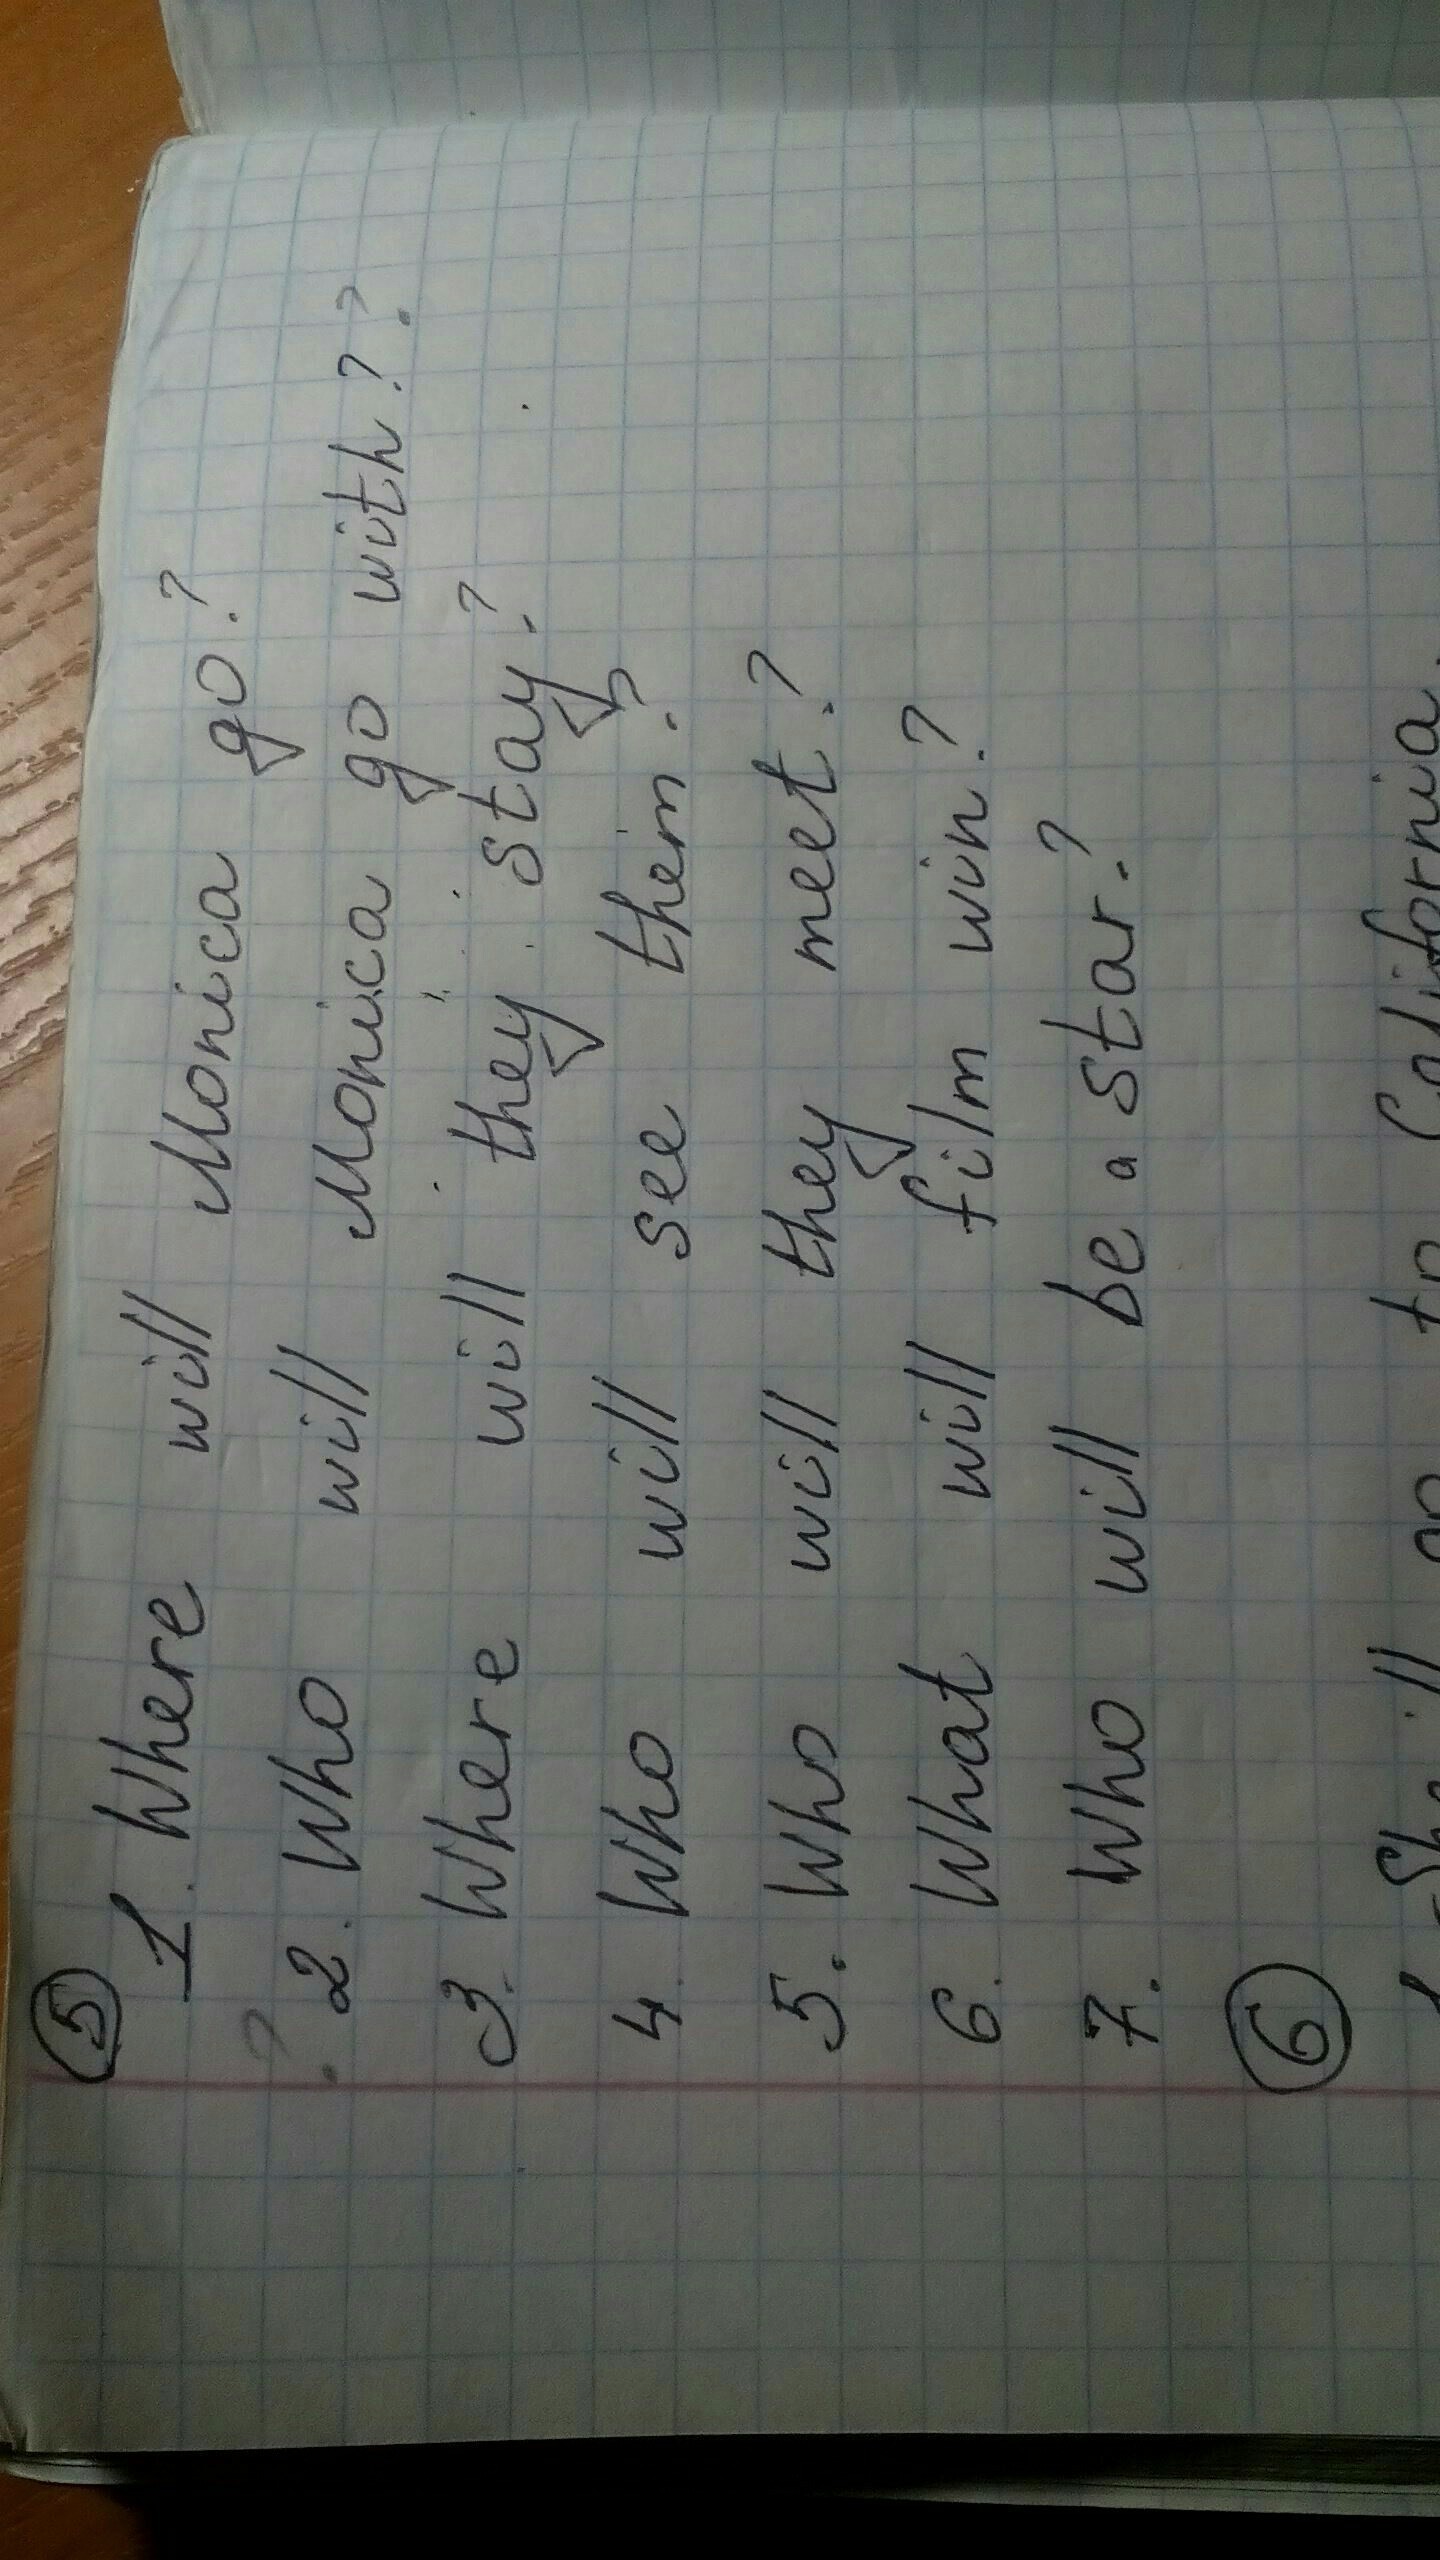 5
1. Where will Monica go?
? 2. Who will Monica go with? ?
3. Where will they stay?
4. Who will see them?
5. Who will they meet?
6. What will film win?
7. Who will be a star?
6
1 She'll go to California.